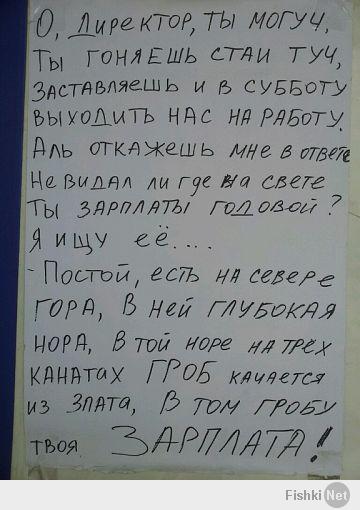 О, Директор, ты могуч,
Ты гоняешь стаи туч,
Заставляешь и в субботу
выходить нас на работу.
Аль откажешь мне в ответе
Не видал ли где на свете
Ты зарплаты годовой?
Я ищу её....
- Постой, есть на севере
гора, в ней глубокая
нора, в той норе на трёх
канатах ГРОБ качается
из злата, в том гробу
твоя ЗАРПЛАТА!
Fishki Net